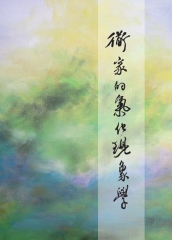 衛家的氣化現象學